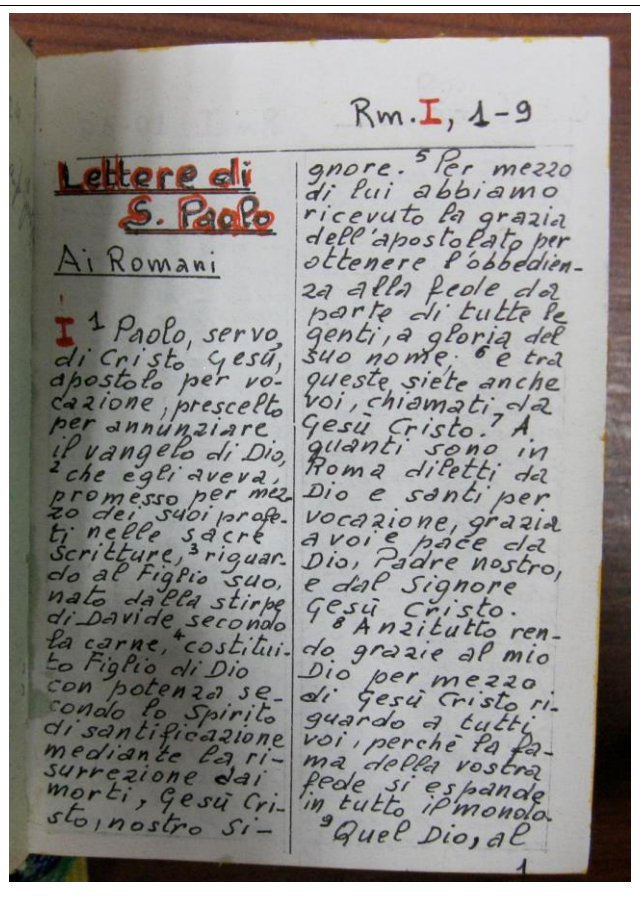 Rm. I, 1-9
Lettere di
S. Paolo
Ai Romani
I 1 Paolo, servo
di Cristo Gesù,
apostolo per vo-
cazione, prescelto
per annunziare
il vangelo di Dio,
2 che egli aveva
promesso per mez-
zo dei suoi profe-
ti nelle sacre
Scritture, 3 riguar-
do al Figlio suo,
nato dalla stirpe
di Davide secondo
la carne, 4 costitui-
to Figlio di Dio
con potenza se-
condo lo Spirito
di santificazione
mediante la ri-
surrezione dai
morti, Gesù Cri-
sto, nostro Si-
gnore. 5 Per mezzo
di lui abbiamo
ricevuto la grazia
dell'apostolato per
ottenere l'obbedien-
za alla fede da
parte di tutte le
genti, a gloria del
suo nome; 6 e tra
queste siete anche
voi, chiamati da
Gesù Cristo. 7 A
quanti sono in
Roma diletti da
Dio e santi per
vocazione, grazia
a voi e pace da
Dio, Padre nostro,
e dal Signore
Gesù Cristo.
8 Anzitutto ren-
do grazie al mio
Dio per mezzo
di Gesù Cristo ri-
guardo a tutti
voi, perchè la fa-
ma della vostra
fede si espande
in tutto il mondo.
9 Quel Dio, al
1